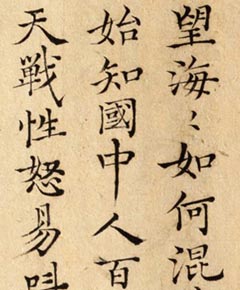 望海〻如何混
始知國中人百
天戰性怒易